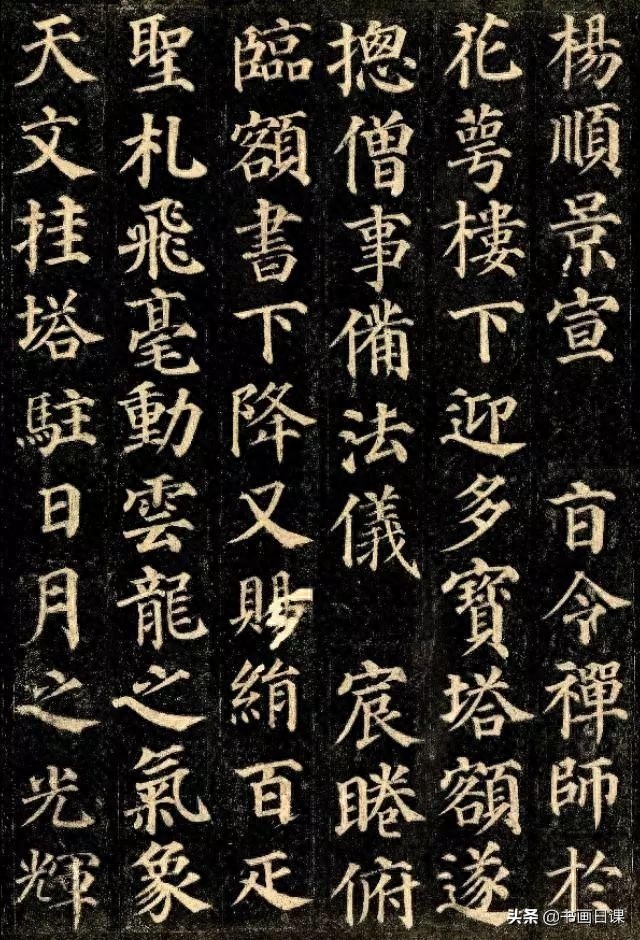 楊順景宣　㫖令禪師於
花萼樓下迎多寶塔額遂
揔僧事備法儀　宸睠俯
臨額書下降又賜絹百疋
聖札飛毫動雲龍之氣象
天文挂塔駐日月之光輝
头条 @书画日课